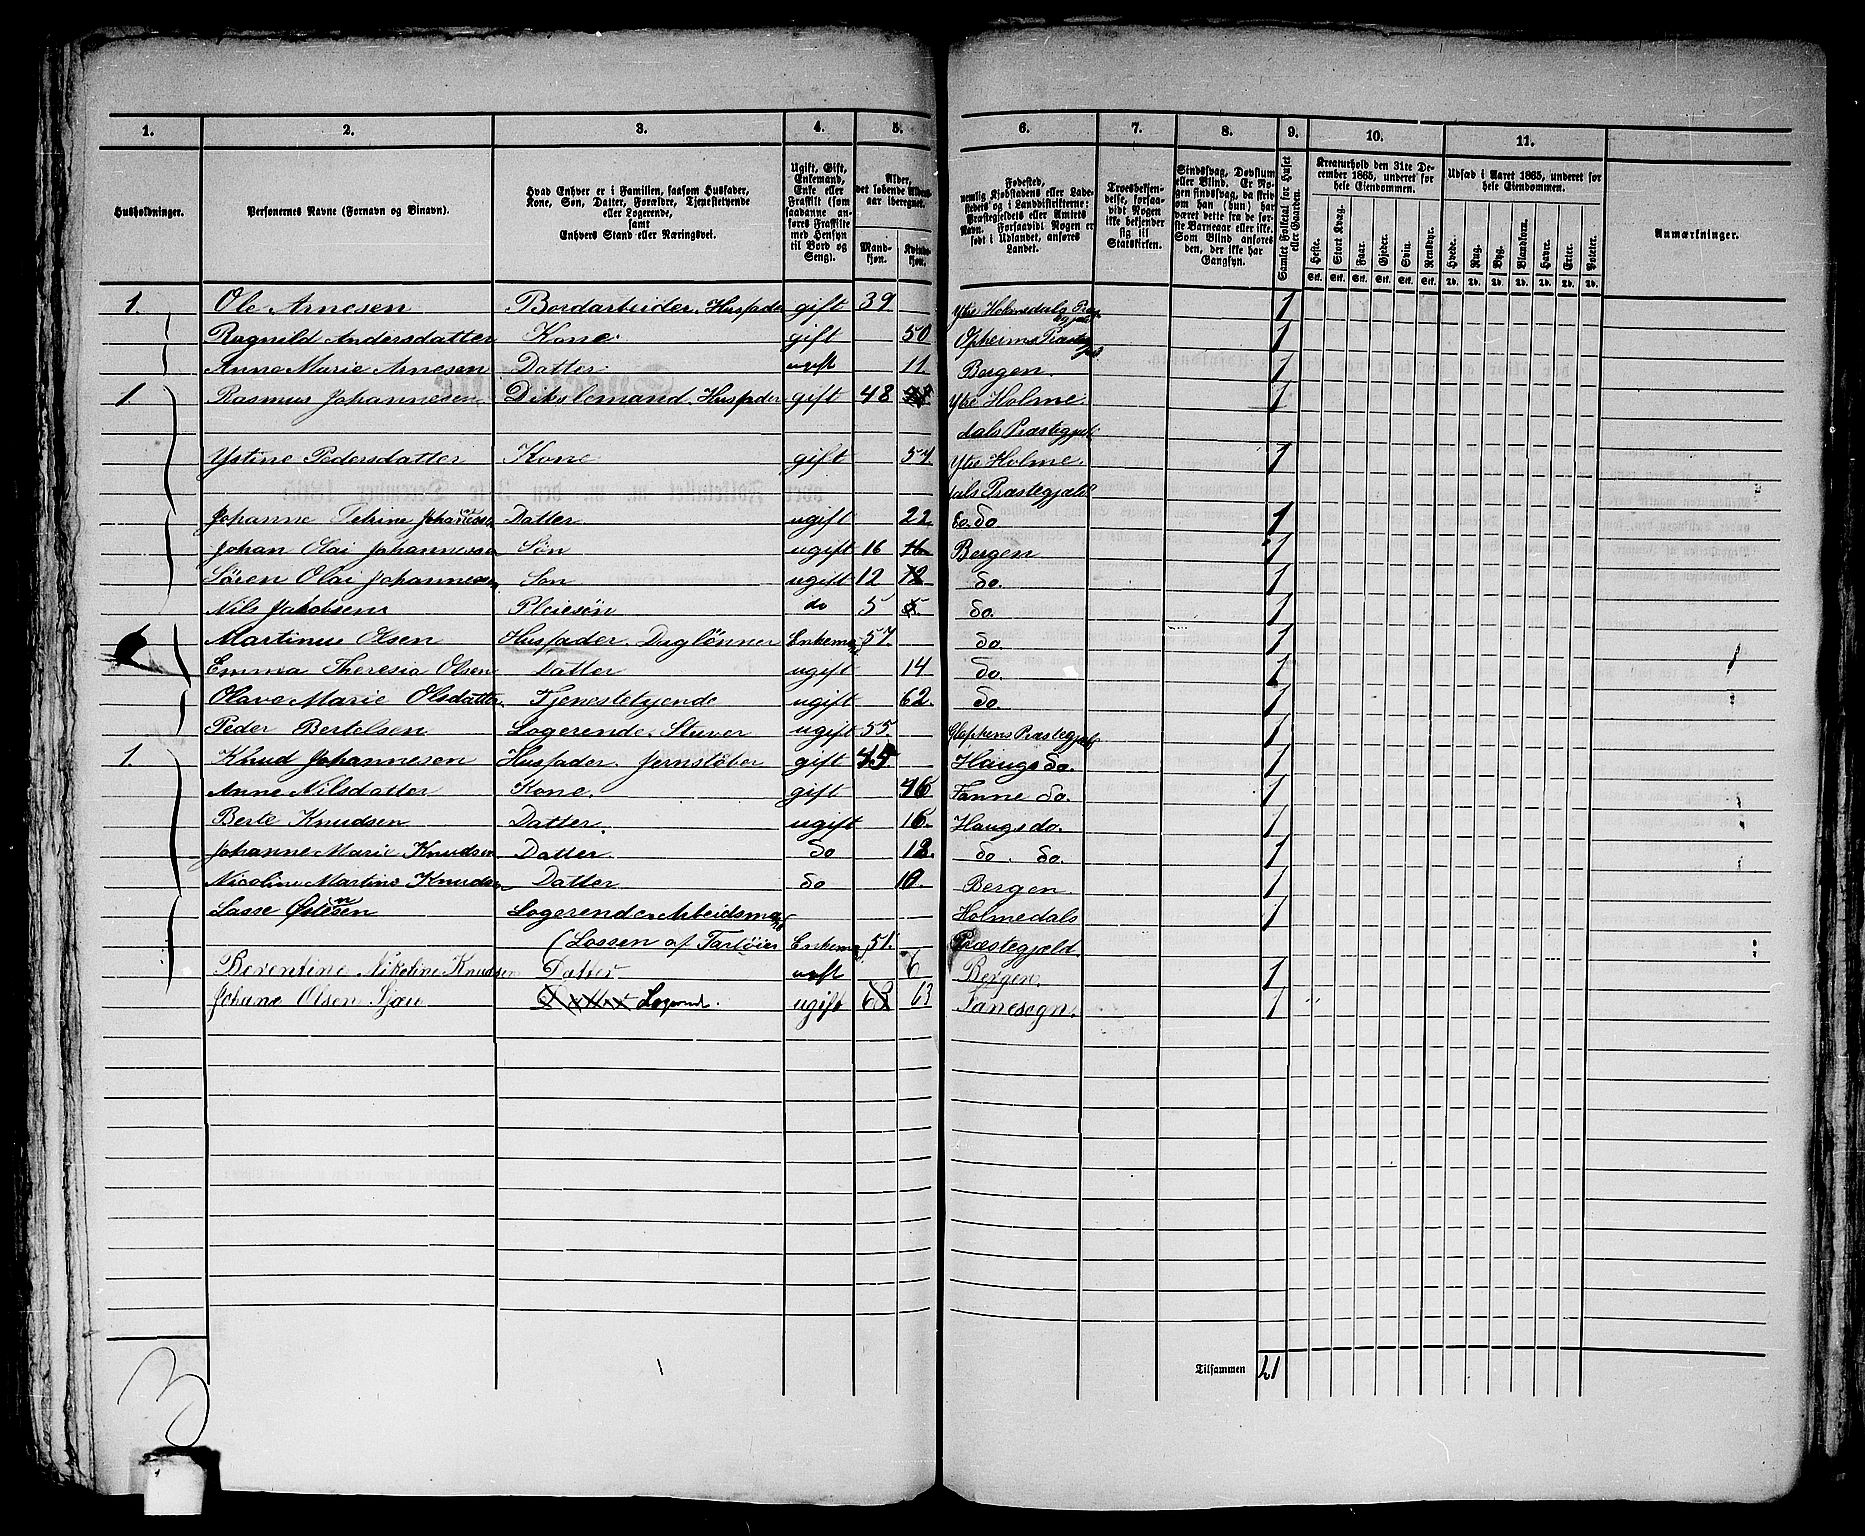 1. 2. 3. 4. 5. 6. 7. 8. 9. 10. 11.
Husholdninger.
Personernes Navne (Fornavn og Tilnavn).
Hvad Enhver er i Familien, saasom Husfader,
Kone, Søn, Datter, Forældre, Tjenestetyende
eller Logerende,
samt
Enhvers Stand eller Næringsvei.
Ugift, Gift,
Enkemand,
Enke eller
Fraskilt (som
saadanne an-
føres Fraskilte
med Hensyn
til Bord og
Seng).
Alder,
det løbende Alders-
aar iberegnet.
Mand-
kjøn.
Kvinde-
kjøn.
Fødested,
nemlig Kjøbstadens eller Lade-
stedets og i Landdistrikterne:
Præstegjeldets eller Amtets
Navn. Forsaavidt Nogen er
født i Udlandet, anføres
Landet.
Troesbekjen-
delse, forsaa-
vidt Nogen
ikke bekjender
sig til
Statskirken.
Sindssvag, Døvstum
eller Blind. Er No-
gen sindssvag, da skriv
om han (hun) har
været dette fra de før-
ste Barneaar eller ikke.
Som Blind anføres
den, der ikke har
Gangsyn.
Samlet Folketal for Huset
eller Gaarden.
Kreaturhold den 31te De-
cember 1865, underet for
hele Eiendommen.
Heste. Stort Kvæg. Faar. Gjeder. Svin. Rensdyr.
Stk. Stk. Stk. Stk. Stk. Stk.
Udsæd i Aaret 1865, underet for
hele Eiendommen.
Hvede. Rug. Byg. Blandkorn. Havre. Erter. Poteter.
Td. Td. Td. Td. Td. Td. Td.
Anmærkninger.
1. Ole Arnesen Bordarbeider, Husfader gift 39. Ytre Holmedals Præstegjæld 1
Ragnild Andersdatter Kone gift 50 Opheims Præstegjæld 1
Anna Marie Arnesen Datter ugift 11. Bergen. 1
1. Rasmus Johannesen Husfader gift 48 Ytre Holme 1
dals Præstegjeld
Ystine Pedersdatter Kone gift 54. Ytre Holme. 1
dals Præstegjæld
Johanne Petrine Johannessen Datter ugift 22. do 1
Johan Olai Johannessen Søn ugift 16 16 Bergen 1
Søren Olai Johannessen Søn ugift 12 12 do. 1
Nils Jakobsen Pleiesøn do 5 5 do. 1
Martinus Olsen Husfader. Daglønner Enkema 57. do. 1
Emma Theresia Olsen Datter ugift 14 do. 1
Olave Marie Olsdatter Tjenestetyende ugift 62. do. 1
Peder Bertelsen Logerende, Stuver ugift 55. Præstegjæld 1
1. Knud Johannesen Husfader. Jernstøber gift 45. Haugs do. 1
Anne Nilsdatter Kone. gift 46 Fanne do. 1
Berte Knudsen Datter. ugift 16. Haugs do. 1
Johanne Marie Knudsen Datter. do 13. do. do. 1
Nicoline Martine Knudsen Datter do 10. Bergen 1
Lasse Østensen Logerende Arbeidsmand Holmedals 1
(Lossen af Tarløier Enkema 51. Præstegjæld.
Berentine Nikoline Knudsen Datter ugift 6 Bergen. 1
Johane Olsen Sjøu Datter Logerende. ugift 63 63 Fanesogn. 1
Tilsammen 21
3